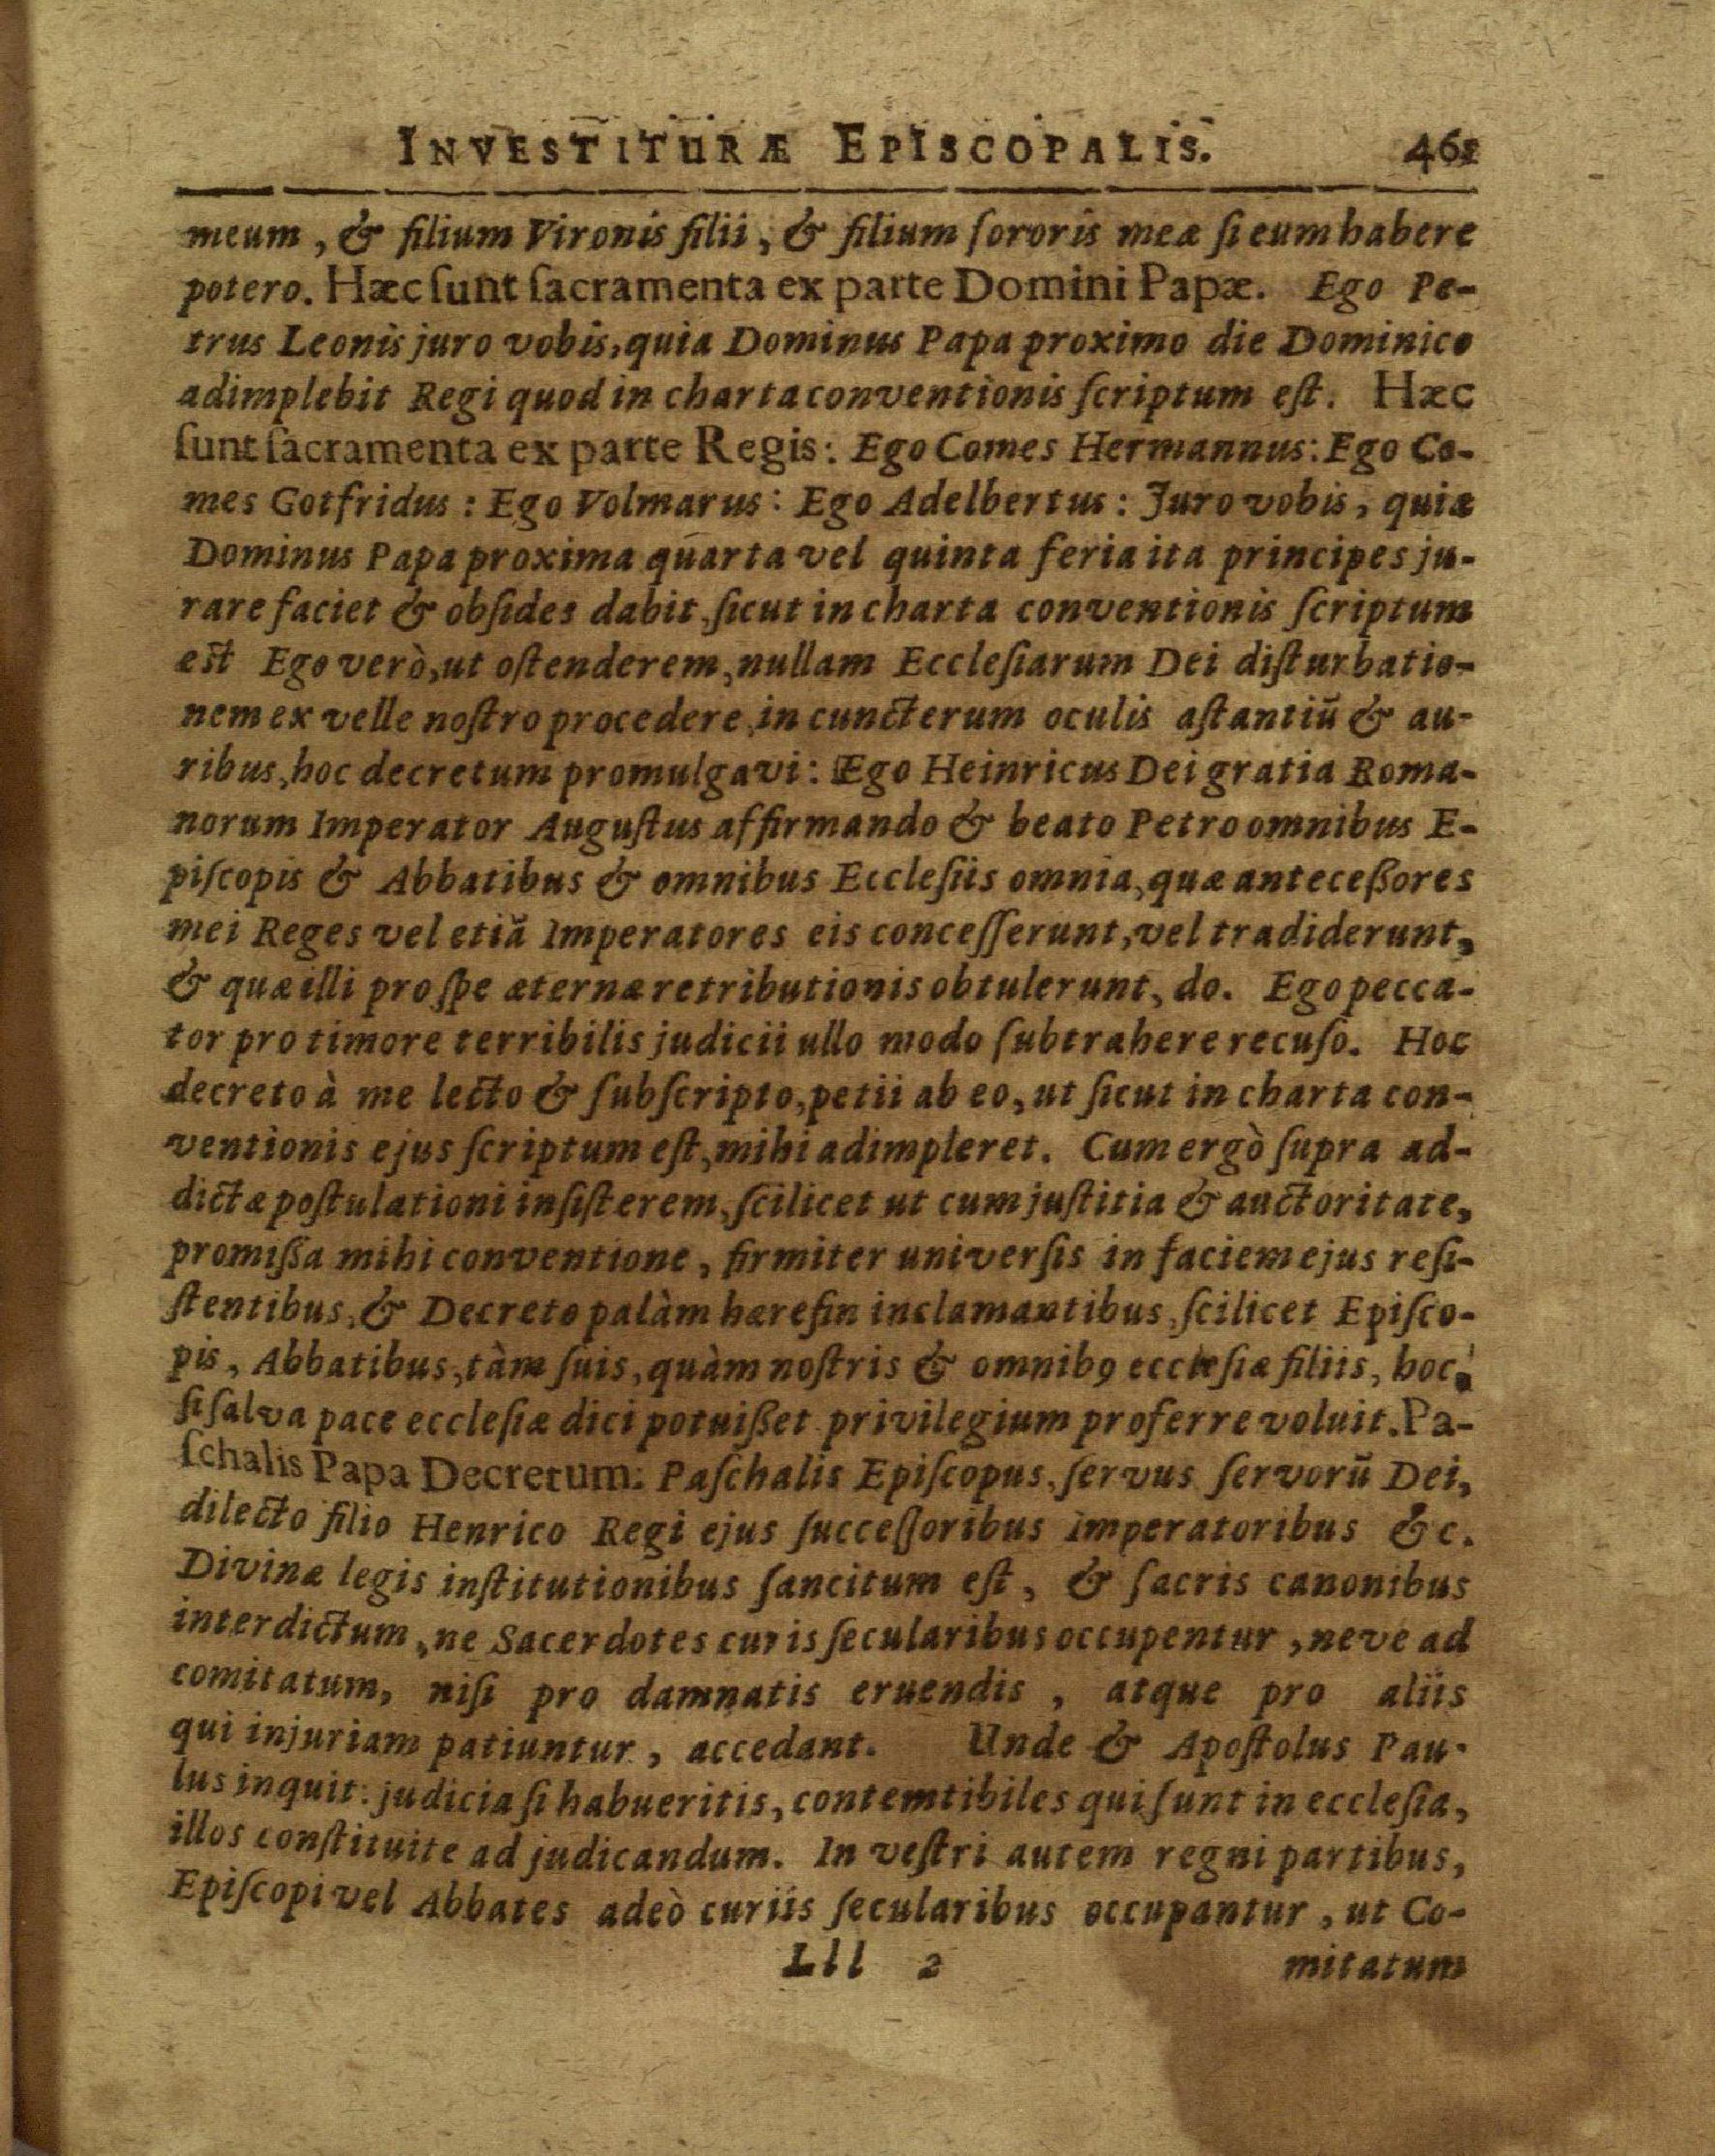 INVESTITURÆ EPISCOPALIS. 461
meum, & filium Vironis filii, & filium ſororis meæ ſi eum habere
potero. Hæc ſunt ſacramenta ex parte Domini Papæ. Ego Pe-
trus Leonis juro vobis, quia Dominus Papa proximo die Dominico
adimplebit Regi quod in charta conventionis ſcriptum eſt. Hæc
ſunt ſacramenta ex parte Regis: Ego Comes Hermannus: Ego Co-
mes Gotfridus: Ego Volmarus: Ego Adelbertus: Juro vobis, quia
Dominus Papa proxima quarta vel quinta feria ita principes ju-
rare faciet & obſides dabit, ſicut in charta conventionis ſcriptum
eſt Ego verò, ut oſtenderem, nullam Eccleſiarum Dei diſturbatio-
nem ex velle noſtro procedere, in cuncterum oculis aſtantiũ & au-
ribus, hoc decretum promulgavi: Ego Heinricus Dei gratia Roma-
norum Imperator Auguſtus affirmando & beato Petro omnibus E-
piſcopis & Abbatibus & omnibus Eccleſiis omnia, quæ anteceßores
mei Reges vel etiã Imperatores eis conceſſerunt, vel tradiderunt,
& quæ illi pro ſpe æternæ retributionis obtulerunt, do. Ego pecca-
tor pro timore terribilis judicii ullo modo ſubtrahere recuſo. Hoc
decreto à me lecto & ſubſcripto, petii ab eo, ut ſicut in charta con-
ventionis ejus ſcriptum eſt, mihi adimpleret. Cum ergò ſupra ad-
dictæ poſtulationi inſiſterem, ſcilicet ut cum juſtitia & auctoritate,
promißa mihi conventione, firmiter univerſis in faciem ejus reſi-
ſtentibus, & Decreto palàm hæreſin inclamantibus, ſcilicet Epiſco-
pis, Abbatibus, tàm ſuis, quàm noſtris & omnibꝯ eccleſiæ filiis, hoc,
ſi ſalva pace eccleſiæ dici potuißet privilegium proferre voluit. Pa-
ſchalis Papa Decretum: Paſchalis Epiſcopus, ſervus ſervorũ Dei,
dilecto filio Henrico Regi ejus ſucceſſoribus Imperatoribus &c.
Divinæ legis inſtitutionibus ſancitum eſt, & ſacris canonibus
interdictum, ne Sacerdotes curis ſecularibus occupentur, neve ad
comitatum, niſi pro damnatis eruendis, atque pro aliis
qui injuriam patiuntur, accedant. Unde & Apoſtolus Pau-
lus inquit: judicia ſi habueritis, contemtibiles qui ſunt in eccleſia,
illos conſtituite ad judicandum. In veſtri autem regni partibus,
Epiſcopi vel Abbates adeò curiis ſecularibus occupantur, ut Co-
Lll 2 mitatum